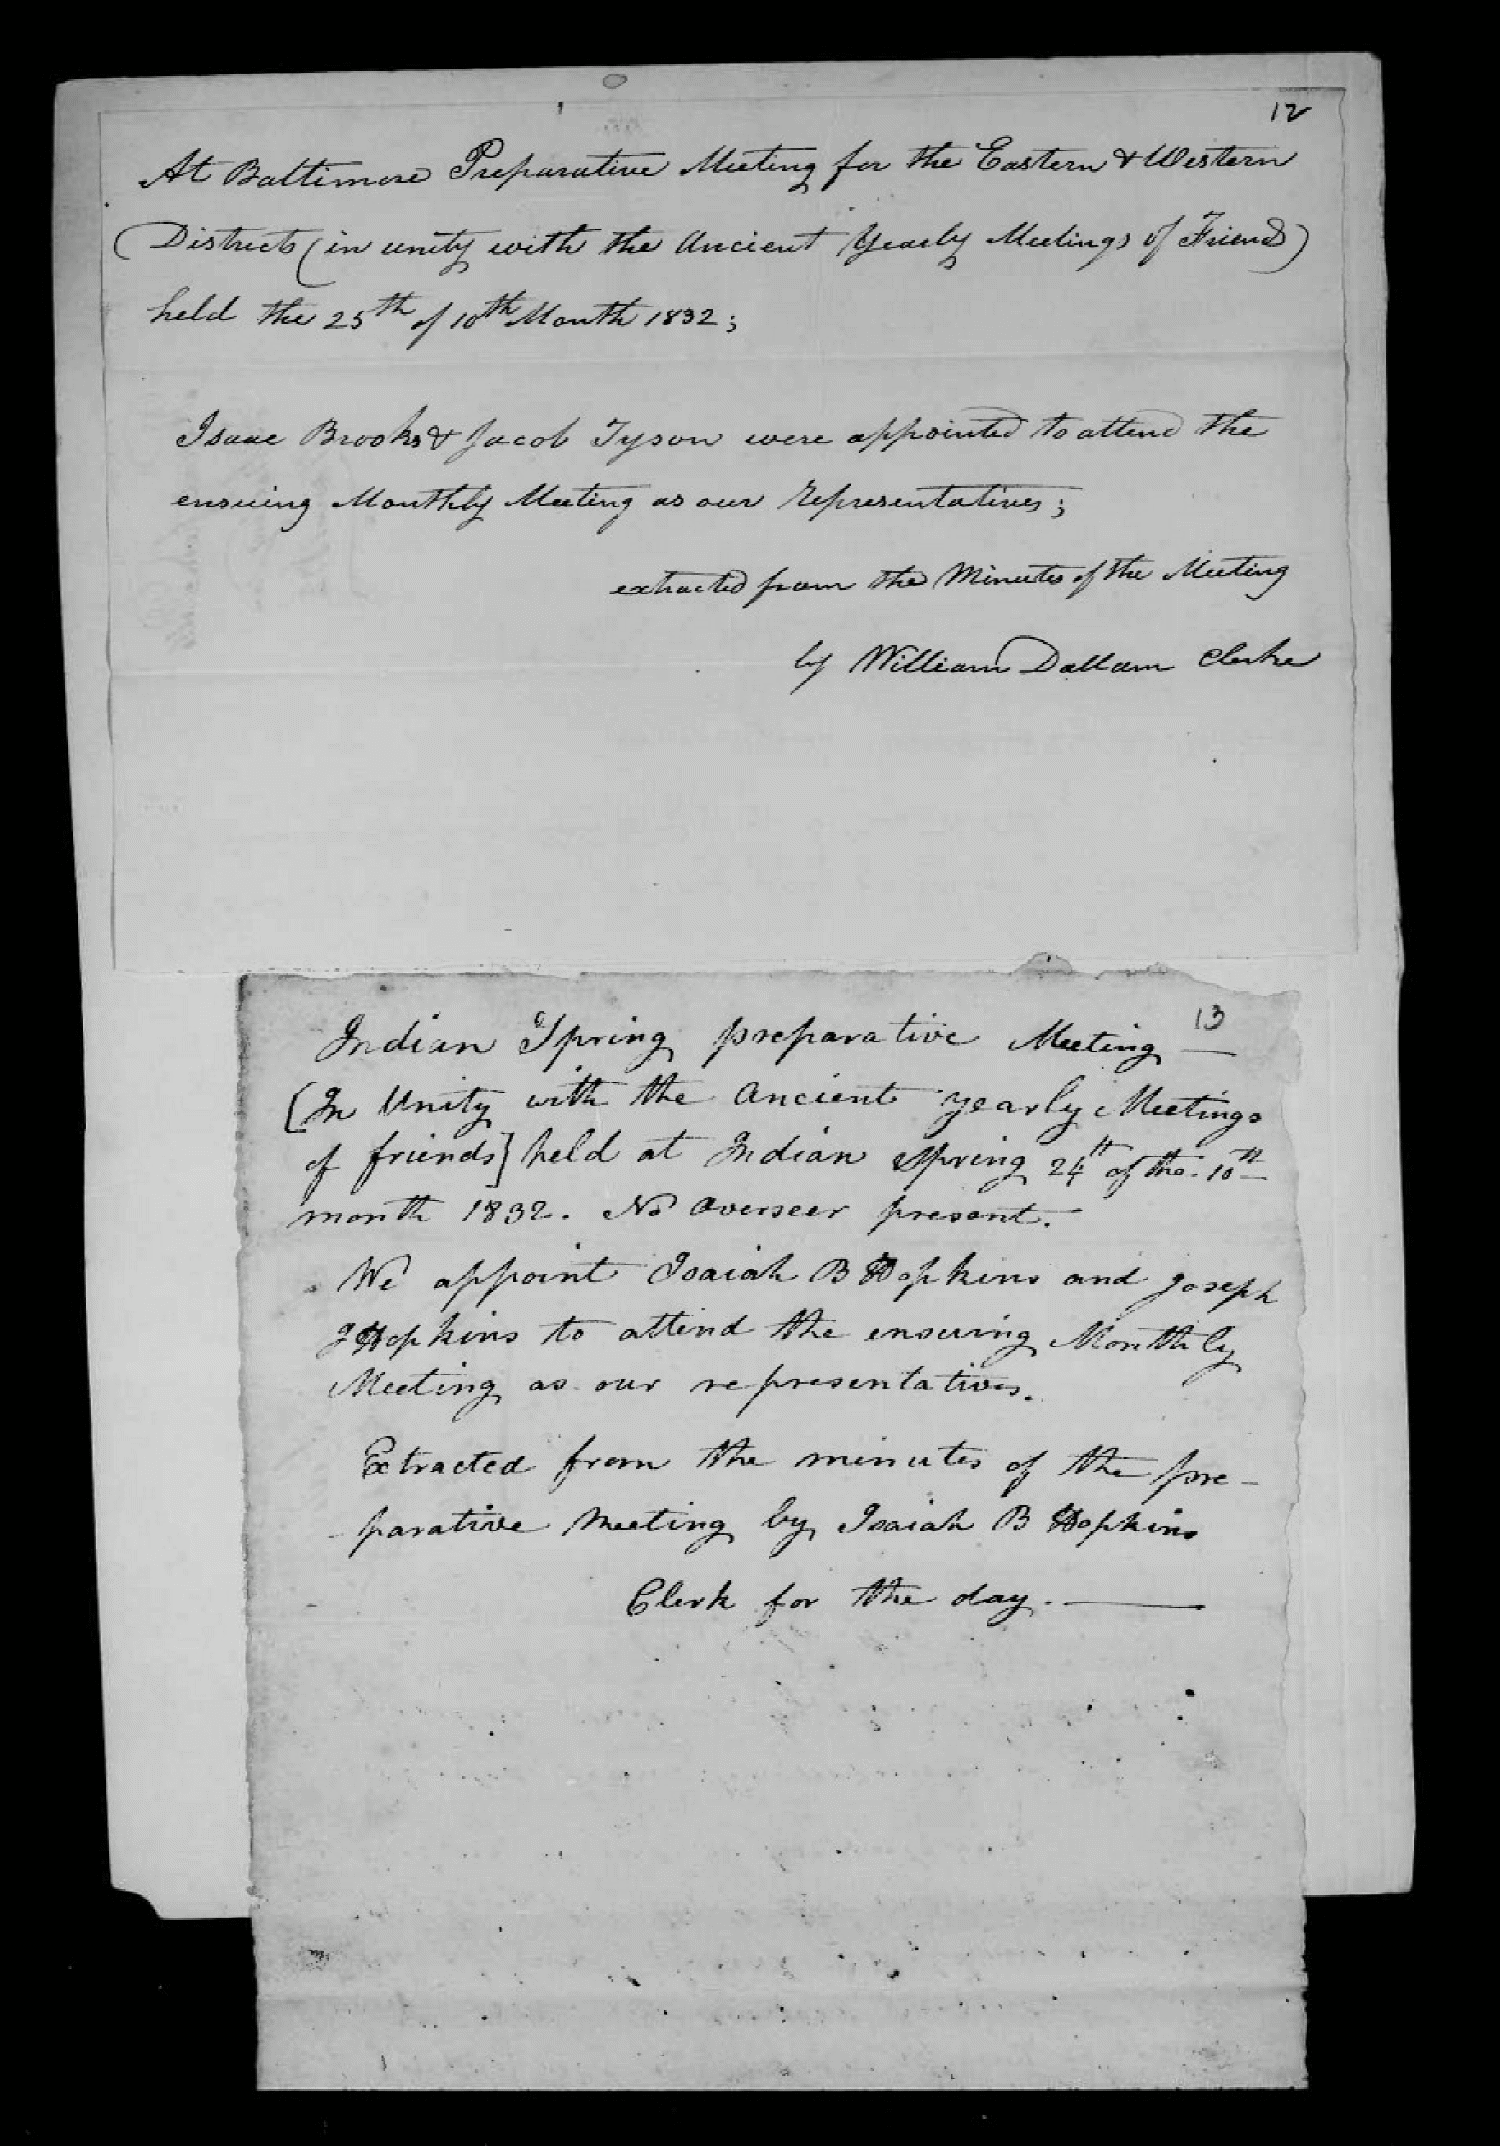 12
At Baltimore Preparative Meeting for the Eastern & Western
Districts (in unity with the Ancient Yearly Meetings of Friends)
held the 25th of 10th Month 1832;
Isaac Brooks & Jacob Tyson were appointed to attend the
ensuing Monthly Meeting as our representatives;
extracted from the Minutes of the Meeting
by William Dallam Clerke
13
Indian Spring preparative Meeting —
[In Unity with the Ancient yearly Meetings
of friends] held at Indian Spring 24th of the 10th
month 1832. No Overseer present.
We appoint Isaiah B Hopkins and Joseph
J Hopkins to attend the ensuing Monthly
Meeting as our representatives.
Extracted from the minutes of the pre-
-parative Meeting by Isaiah B Hopkins
Clerk for the day. —